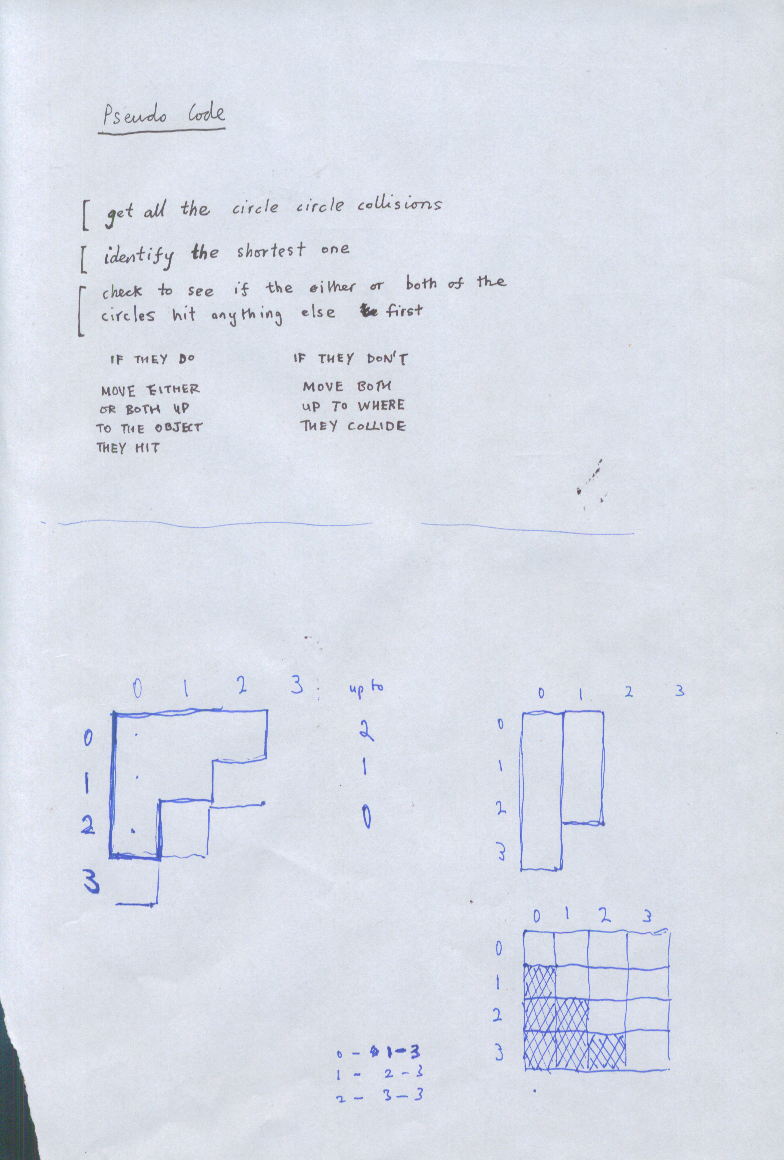 Pseudo Code
get all the circle circle collisions
identify the shortest one
check to see if the either or both of the
circles hit anything else first
IF THEY DO
MOVE EITHER
OR BOTH UP
TO THE OBJECT
THEY HIT
IF THEY DON'T
MOVE BOTH
UP TO WHERE
THEY COLLIDE
0 1 2 3 up to
0 2
1 1
2 0
3
0 1 2 3
0
1
2
3
0 1 2 3
0
1
2
3
0 - 1-3
1 - 2-3
2 - 3-3